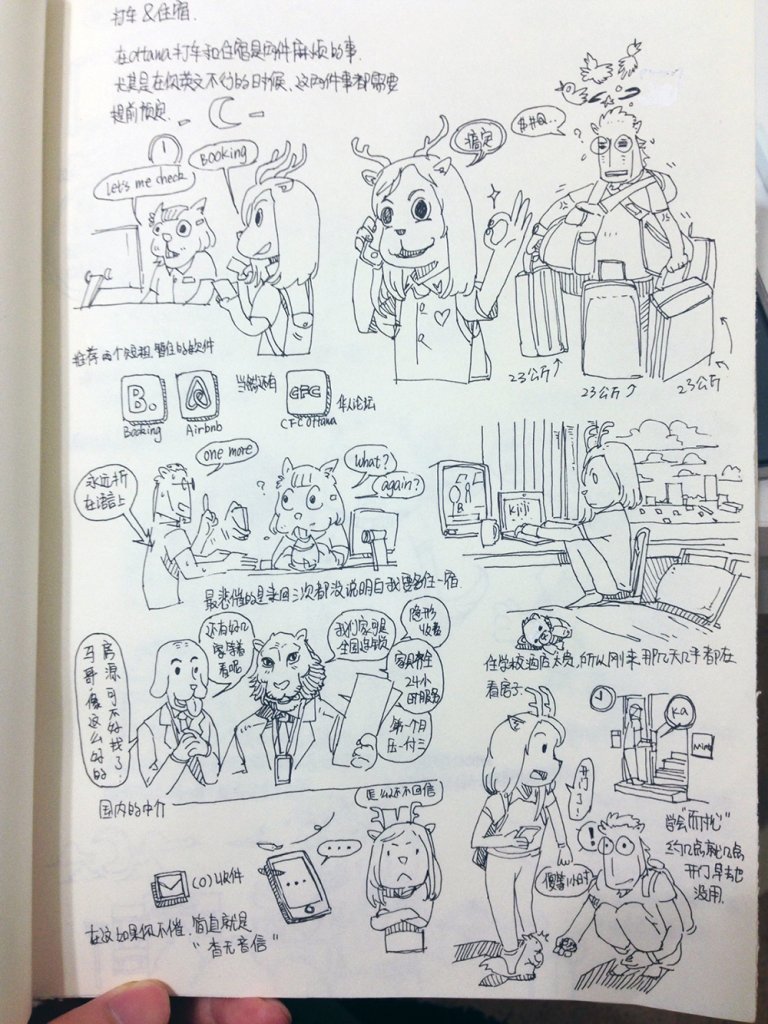 打车 & 住宿.
在ottawa打车和住宿是两件麻烦的事.
尤其是在你英文不行的时候, 这两件事都需要
提前预定.
Let's me check
Booking
搞定
$#@..
23公斤
23公斤
23公斤
推荐两个短租、暂住的软件
B.
Booking
Airbnb
当然还有
CFC
CFC Ottawa
华人论坛
永远折
在语言上
one more
?
what?
again?
最悲催的是来回三次都没说明白我要多住一宿
kiji
住学校酒店太贵,所以刚来那几天几乎都在
看房子.
马哥,像这么好的
房源可不好找了.
还有好几
家等着
看呢
我们家可是
全国连锁
隐形
收费
家具齐全
24小
时服务
第一个月
压一付三
国内的中介
(0)邮件
...
...
怎么还不回信
在这如果你不催, 简直就是
“杳无音信”
开门了!
!
Ka
学会“守时”
约几点就几点
开门,早去也
没用.